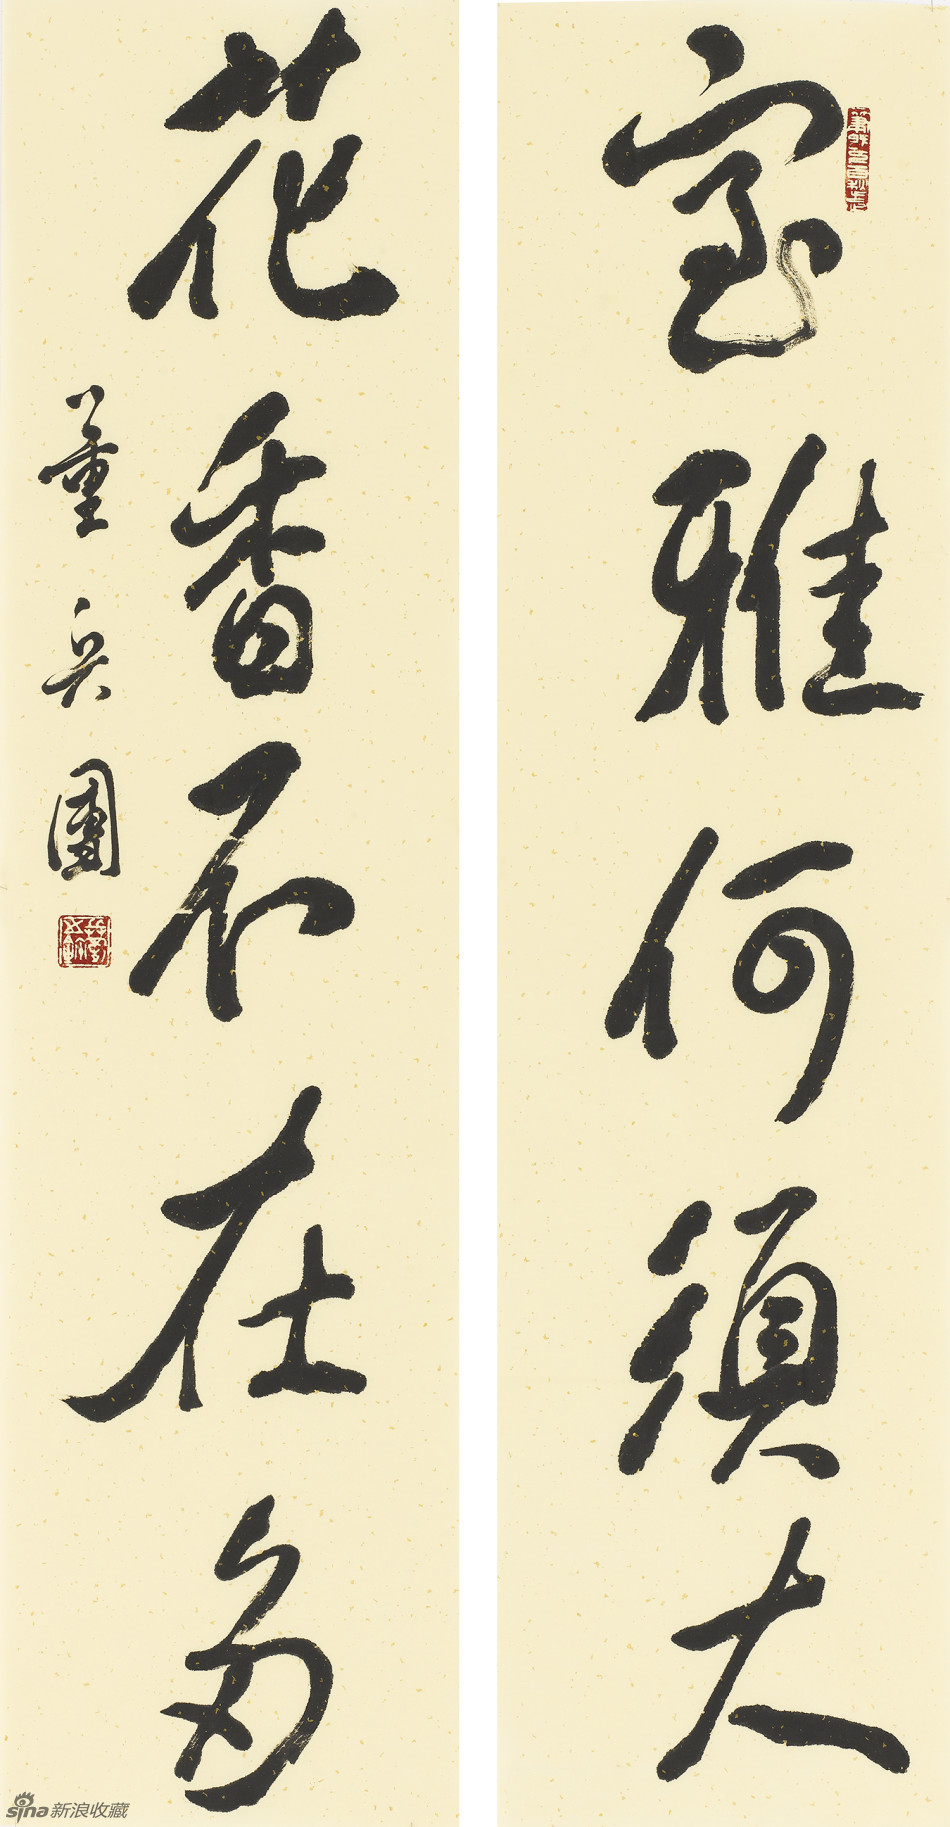 室雅何須大
花香不在多
董兵團
sina新浪收藏